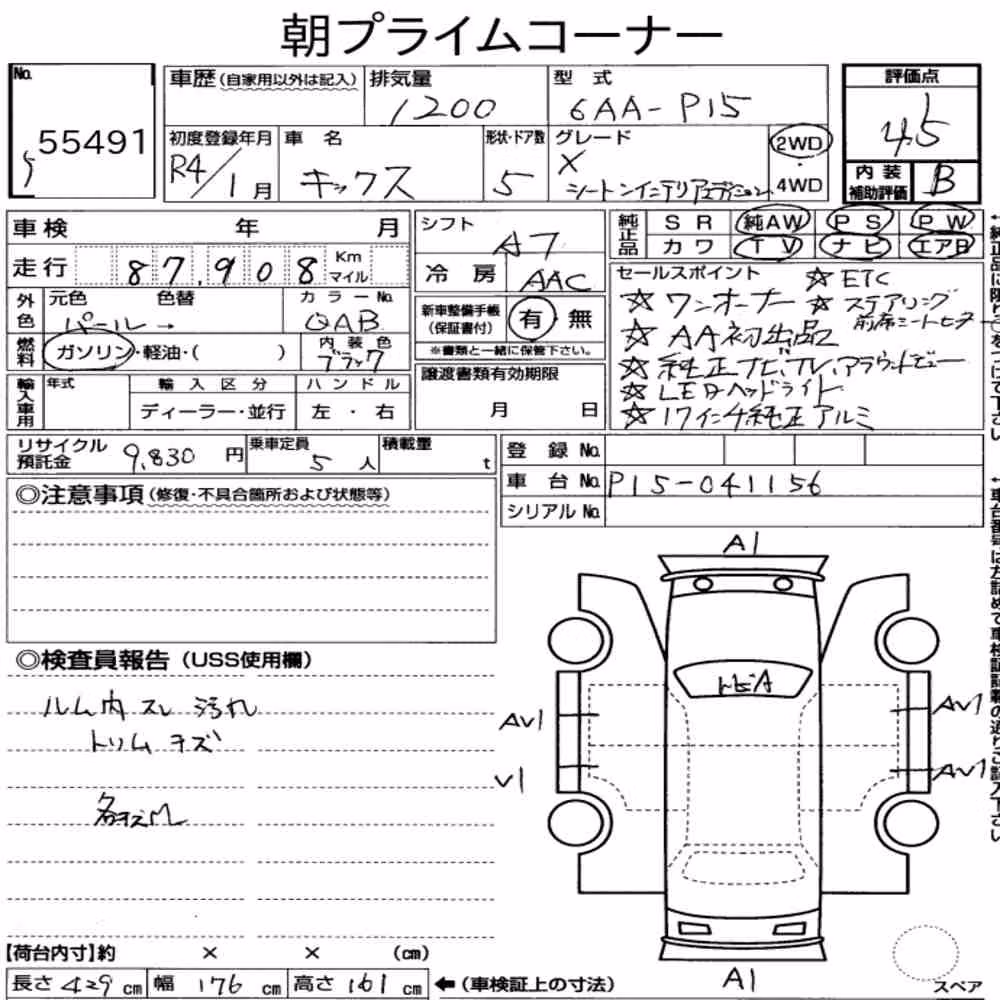 朝プライムコーナー
No. 55491
車歴(自家用以外は記入)
排気量 1200
型式 6AA-P15
評価点 4.5
初度登録年月 R4/1月
車名 キックス
形状・ドア数 5
グレード X
2WD
・
4WD
内装補助評価 B
車検 年 月
シフト A7
純正品 SR 純AW PS PW
カワ TV ナビ エアB
走行 87,908 Km マイル
冷房 AAC
セールスポイント ☆ETC
☆ワンオーナー ☆ステアリング
前席シートヒーター
☆AA初出品
☆純正ナビ,TV,アラウンドビュー
☆LEDヘッドライト
☆17インチ純正アルミ
外色 元色 色替 カラーNo.
パール→ QAB
新車整備手帳(保証書付) 有・無
※書類と一緒に保管下さい。
燃料 ガソリン・軽油・( )
内装色 ブラック
譲渡書類有効期限
月 日
輸入車用 年式 輸入区分 ハンドル
ディーラー・並行 左・右
リサイクル預託金 9,830円
乗車定員 5人
積載量 t
登録No.
車台No. P15-041156
シリアルNo.
◎注意事項(修復・不具合箇所および状態等)
◎検査員報告(USS使用欄)
ルム内スレ 汚れ
トリムキズ
A1
AV1
V1
AV1
AV1
A1
【荷台内寸】約 × × (cm)
長さ 429 cm 幅 176 cm 高さ 161 cm ←(車検証上の寸法)
スペア